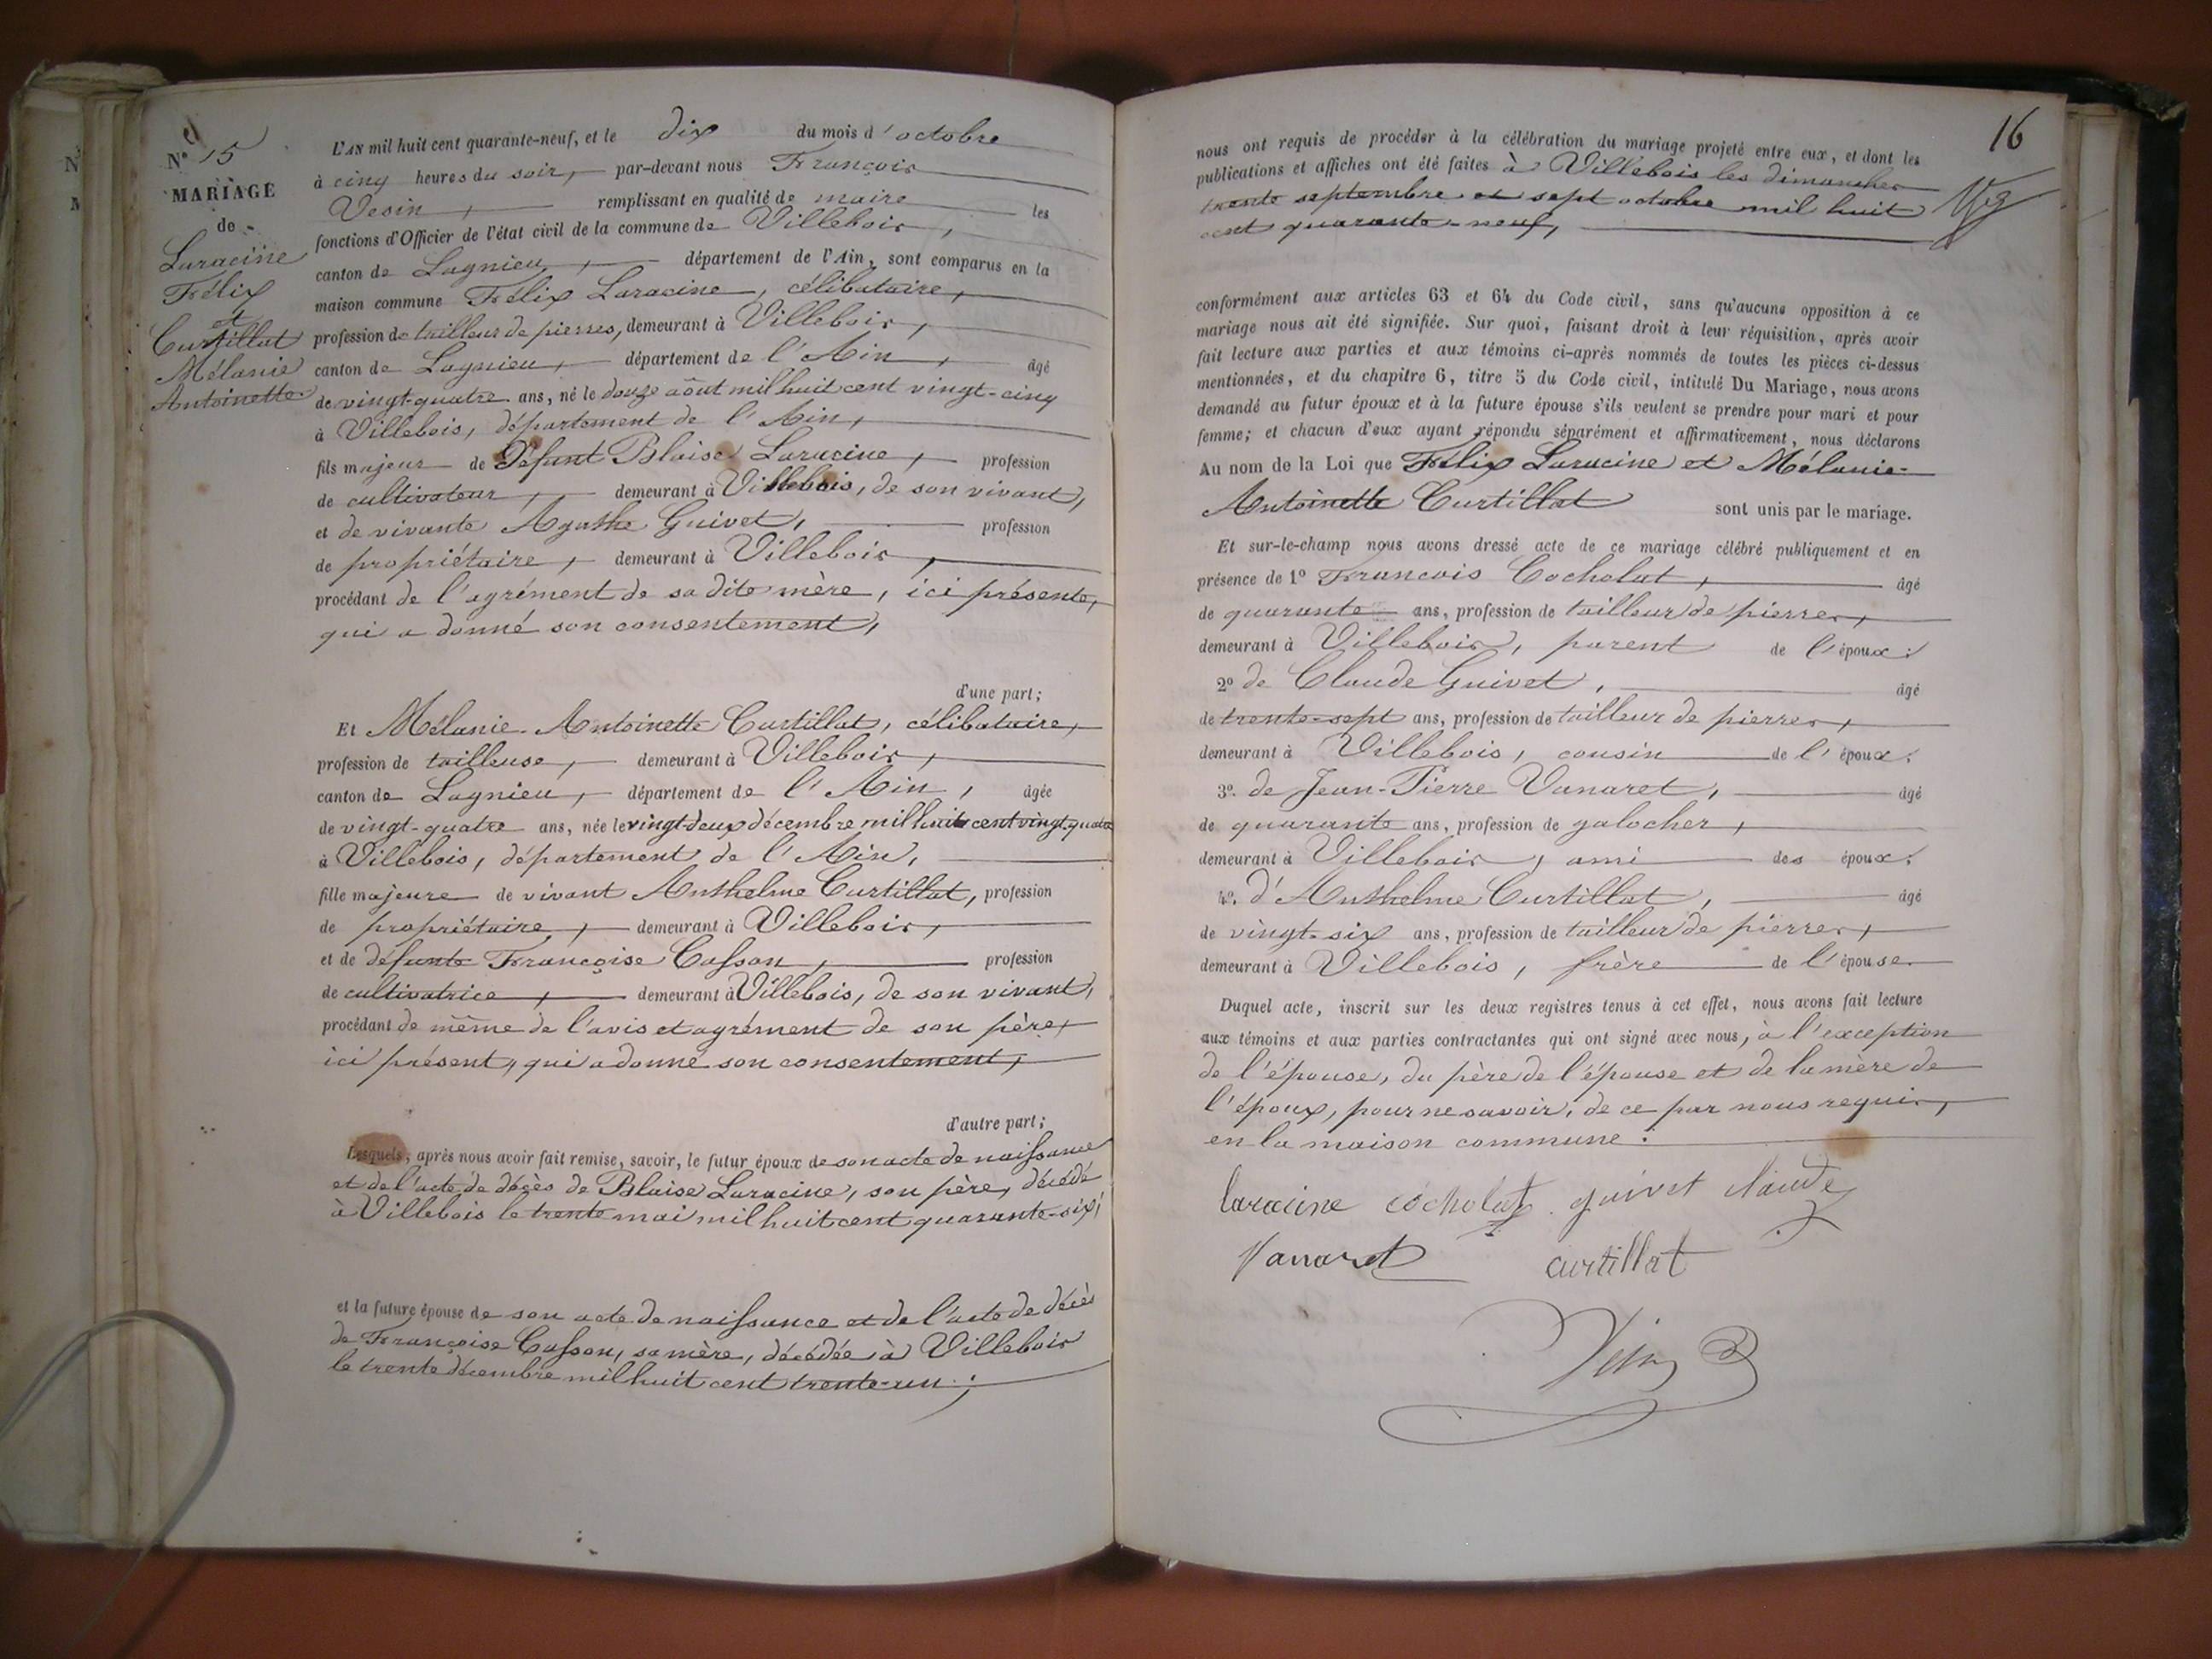 N° 15
MARIAGE
de
Laracine
Félix
et
Curtillat
Mélanie
Antoinette
L'AN mil huit cent quarante-neuf, et le dix du mois d'octobre
à cinq heures du soir, par-devant nous François
Vesin, remplissant en qualité de maire les
fonctions d'Officier de l'état civil de la commune de Villebois,
canton de Lagnieu, département de l'Ain, sont comparus en la
maison commune Félix Laracine, célibataire,
profession de tailleur de pierres, demeurant à Villebois,
canton de Lagnieu, département de l'Ain, âgé
de vingt-quatre ans, né le douze août mil huit cent vingt-cinq
à Villebois, département de l'Ain,
fils majeur de Défunt Blaise Laracine, profession
de cultivateur, demeurant à Villebois, de son vivant,
et de vivante Agathe Guivet, profession
de propriétaire, demeurant à Villebois,
procédant de l'agrément de sa dite mère, ici présente,
qui a donné son consentement,
d'une part;
Et Mélanie-Antoinette Curtillat, célibataire,
profession de tailleuse, demeurant à Villebois,
canton de Lagnieu, département de l'Ain, âgée
de vingt-quatre ans, née le vingt-deux décembre mil huit cent vingt-quatre
à Villebois, département de l'Ain,
fille majeure de vivant Anthelme Curtillat, profession
de propriétaire, demeurant à Villebois,
et de défunte Françoise Casson, profession
de cultivatrice, demeurant à Villebois, de son vivant,
procédant de même de l'avis et agrément de son père,
ici présent, qui a donné son consentement,
d'autre part;
Lesquels, après nous avoir fait remise, savoir, le futur époux de son acte de naissance
et de l'acte de décès de Blaise Laracine, son père, décédé
à Villebois le trente mai mil huit cent quarante-six;
et la future épouse de son acte de naissance et de l'acte de décès
de Françoise Casson, sa mère, décédée à Villebois
le trente décembre mil huit cent trente-un;
16
nous ont requis de procéder à la célébration du mariage projeté entre eux, et dont les
publications et affiches ont été faites à Villebois les dimanches
trente septembre et sept octobre mil huit
cent quarante-neuf,
conformément aux articles 63 et 64 du Code civil, sans qu'aucune opposition à ce
mariage nous ait été signifiée. Sur quoi, faisant droit à leur réquisition, après avoir
fait lecture aux parties et aux témoins ci-après nommés de toutes les pièces ci-dessus
mentionnées, et du chapitre 6, titre 5 du Code civil, intitulé Du Mariage, nous avons
demandé au futur époux et à la future épouse s'ils veulent se prendre pour mari et pour
femme; et chacun d'eux ayant répondu séparément et affirmativement, nous déclarons
Au nom de la Loi que Félix Laracine et Mélanie-
Antoinette Curtillat sont unis par le mariage.
Et sur-le-champ nous avons dressé acte de ce mariage célébré publiquement et en
présence de 1° François Cocholat, âgé
de quarante ans, profession de tailleur de pierres,
demeurant à Villebois, parent de l'époux;
2° de Claude Guivet, âgé
de trente-sept ans, profession de tailleur de pierres,
demeurant à Villebois, cousin de l'époux;
3° de Jean-Pierre Vanaret, âgé
de quarante ans, profession de galocher,
demeurant à Villebois, ami des époux;
4° d'Anthelme Curtillat, âgé
de vingt-six ans, profession de tailleur de pierres,
demeurant à Villebois, frère de l'épouse.
Duquel acte, inscrit sur les deux registres tenus à cet effet, nous avons fait lecture
aux témoins et aux parties contractantes qui ont signé avec nous, à l'exception
de l'épouse, du père de l'épouse et de la mère de
l'époux, pour ne savoir, de ce par nous requis,
en la maison commune.
laracine cocholat guivet claude
Vanaret curtillat
Vesin